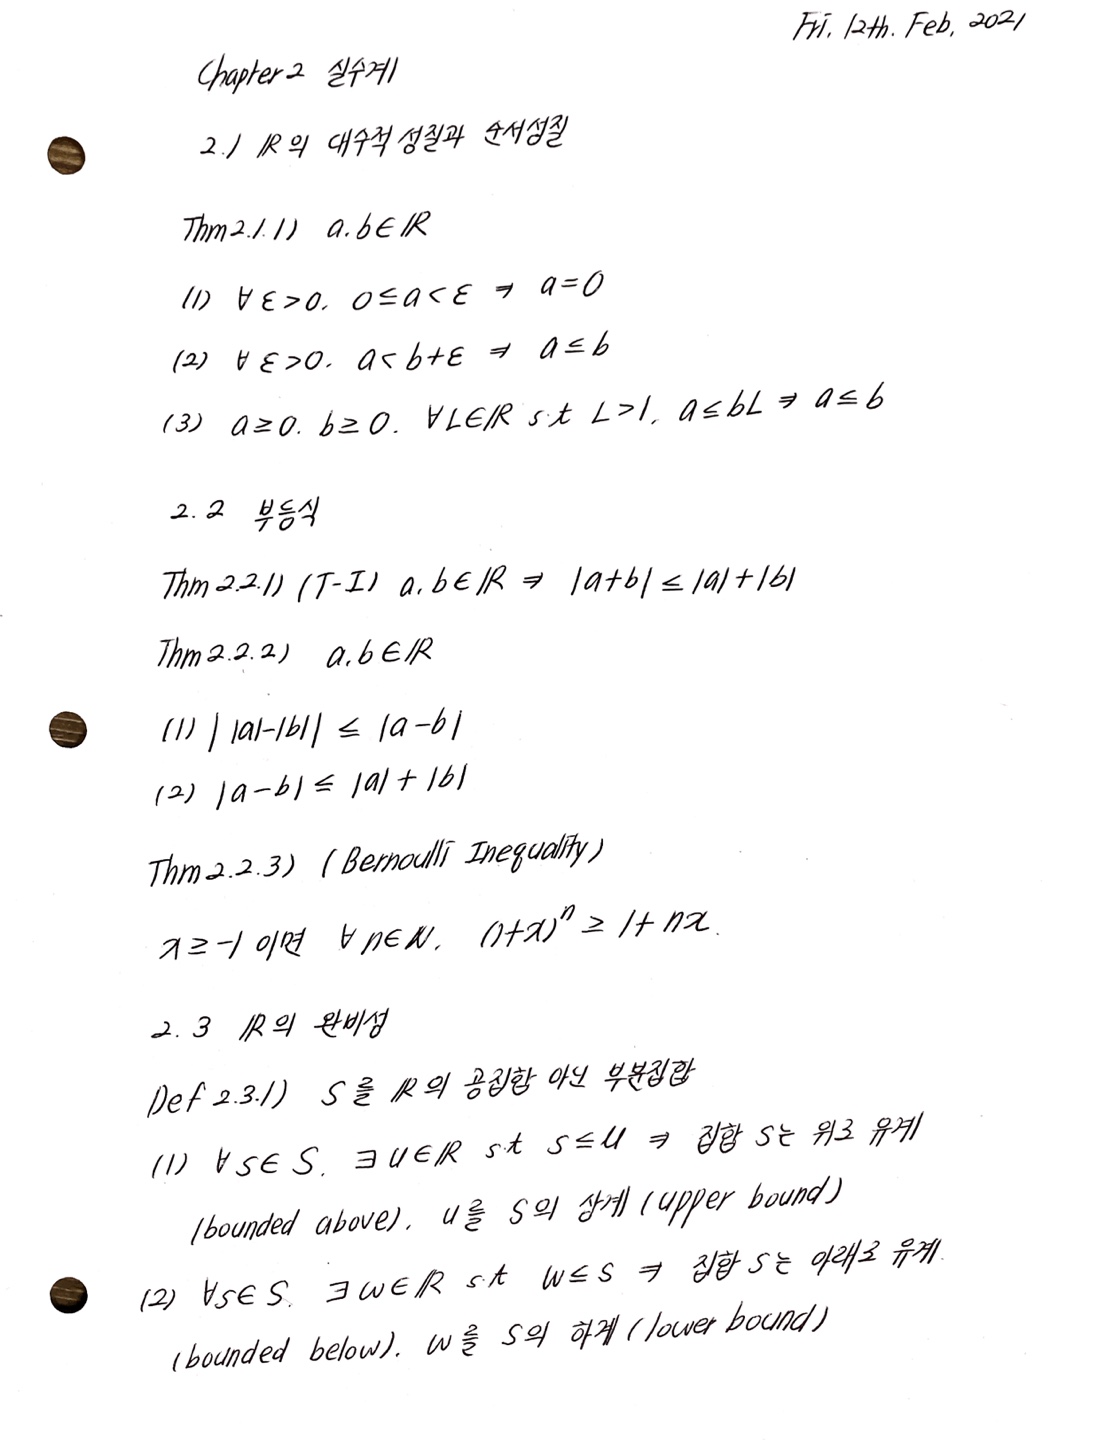 Fri. 12th. Feb. 2021
Chapter 2 실수계
2.1 ℝ의 대수적 성질과 순서성질
Thm 2.1.1) a.b∈ℝ
(1) ∀ε>0. 0≤a<ε ⇒ a=0
(2) ∀ε>0. a<b+ε ⇒ a≤b
(3) a≥0. b≥0. ∀L∈ℝ s.t L>1, a≤bL ⇒ a≤b
2.2 부등식
Thm 2.2.1) (T-I) a.b∈ℝ ⇒ |a+b|≤|a|+|b|
Thm 2.2.2) a.b∈ℝ
(1) | |a|-|b| | ≤ |a-b|
(2) |a-b| ≤ |a|+|b|
Thm 2.2.3) (Bernoulli Inequality)
x≥-1 이면 ∀n∈ℕ. (1+x)ⁿ ≥ 1+nx.
2.3 ℝ의 완비성
Def 2.3.1) S를 ℝ의 공집합 아닌 부분집합
(1) ∀s∈S. ∃u∈ℝ s.t s≤u ⇒ 집합 S는 위로 유계
(bounded above). u를 S의 상계 (upper bound)
(2) ∀s∈S. ∃w∈ℝ s.t w≤s ⇒ 집합 S는 아래로 유계.
(bounded below). w를 S의 하계 (lower bound)